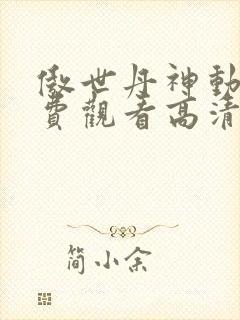 傲世丹神動
費觀看高清
简小余